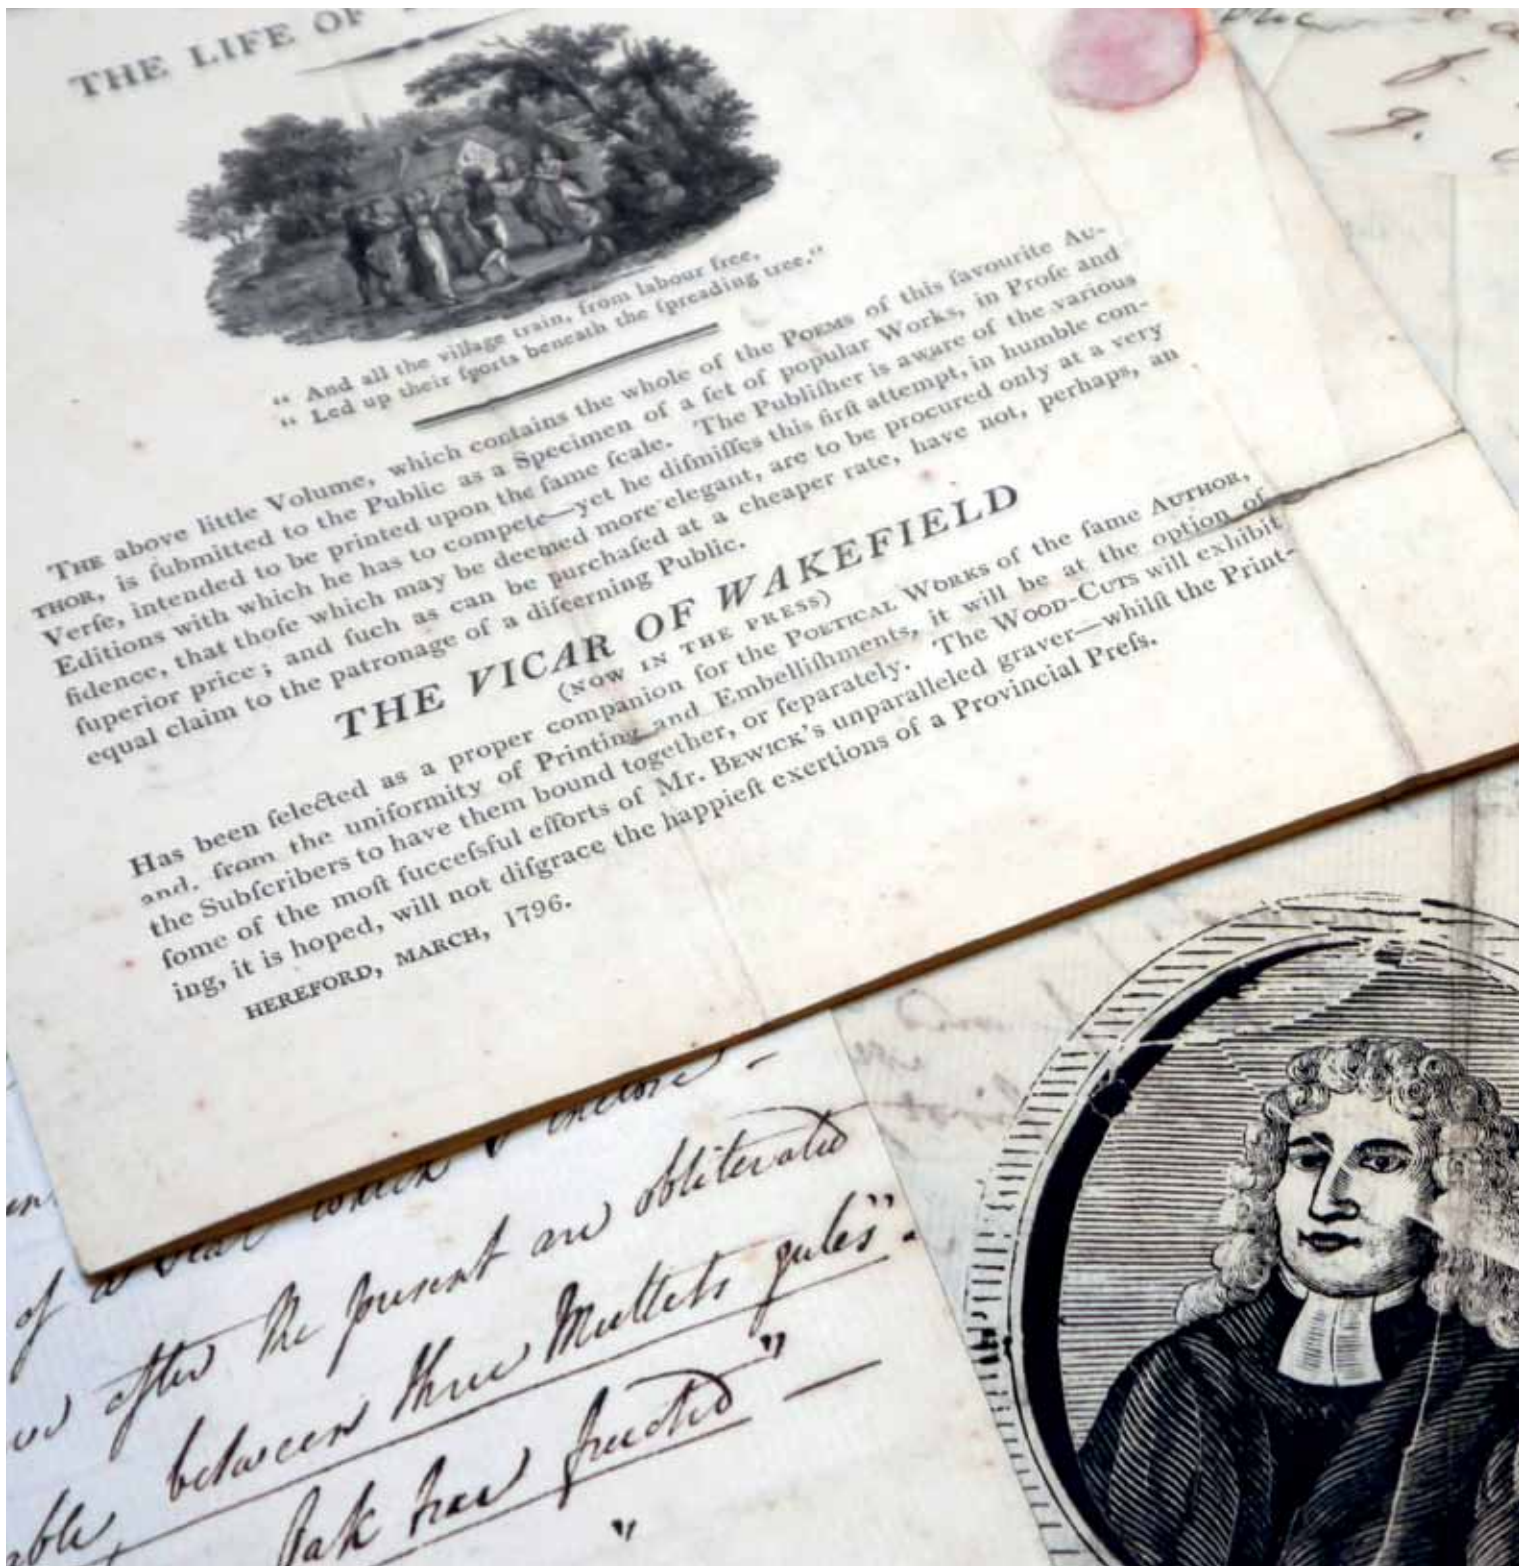 THE LIFE OF
“ And all the village train, from labour free,
“ Led up their ſports beneath the ſpreading tree.“
THE above little Volume, which contains the whole of the POEMS of this favourite AU-
THOR, is ſubmitted to the Public as a Specimen of a ſet of popular Works, in Proſe and
Verſe, intended to be printed upon the ſame ſcale. The Publiſher is aware of the various
Editions with which he has to compete—yet he diſmiſſes this firſt attempt, in humble con-
fidence, that thoſe which may be deemed more elegant, are to be procured only at a very
ſuperior price; and ſuch as can be purchaſed at a cheaper rate, have not, perhaps, an
equal claim to the patronage of a diſcerning Public.
THE VICAR OF WAKEFIELD
(NOW IN THE PRESS)
Has been ſelected as a proper companion for the POETICAL WORKS of the ſame AUTHOR,
and, from the uniformity of Printing and Embelliſhments, it will be at the option of
the Subſcribers to have them bound together, or ſeparately. The WOOD-CUTS will exhibit
ſome of the moſt ſucceſsful efforts of Mr. BEWICK's unparalleled graver—whilſt the Print-
ing, it is hoped, will not diſgrace the happieſt exertions of a Provincial Preſs.
HEREFORD, MARCH, 1796.
of a
after the present are obliterated
between three Mullets gules”.
Oak tree fructed” —